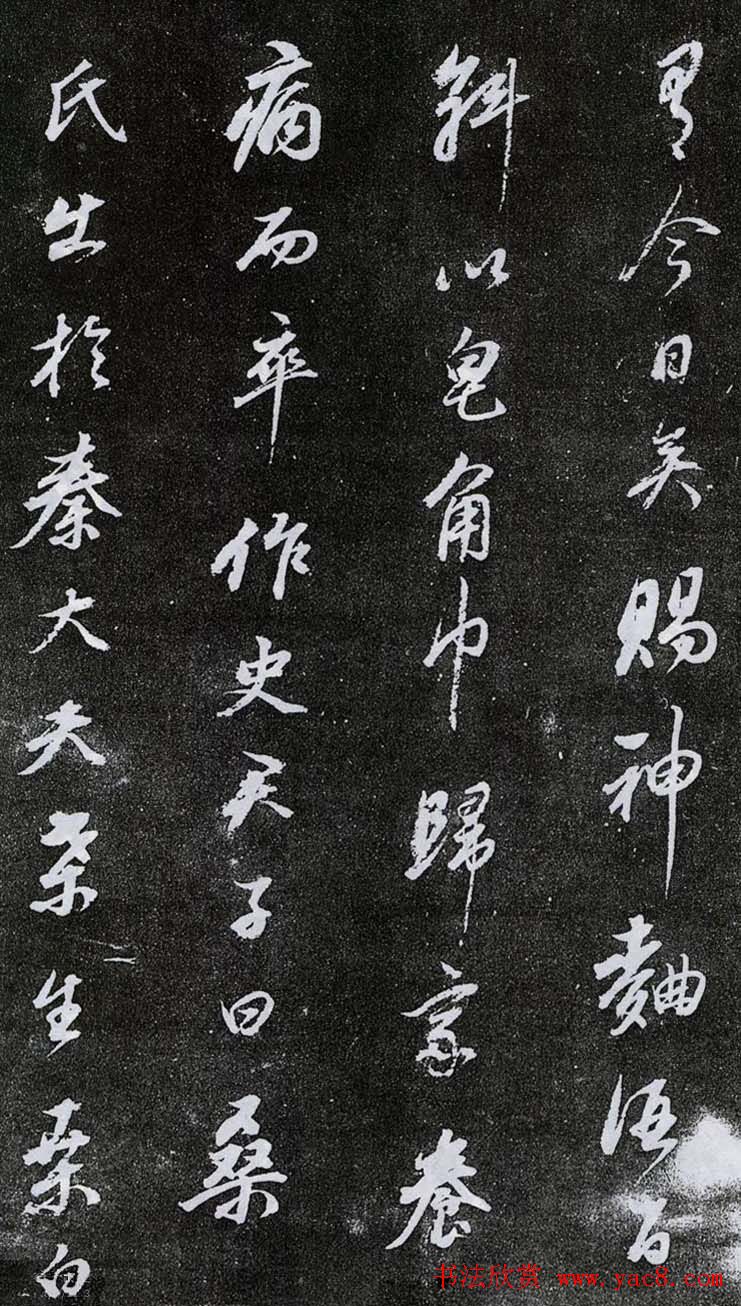 有今日矣賜神麯伍百
斛以皂角巾歸家養
病而卒作史君子曰桑
氏出於秦大夫桒生桒白
书法欣赏 www.yac8.com